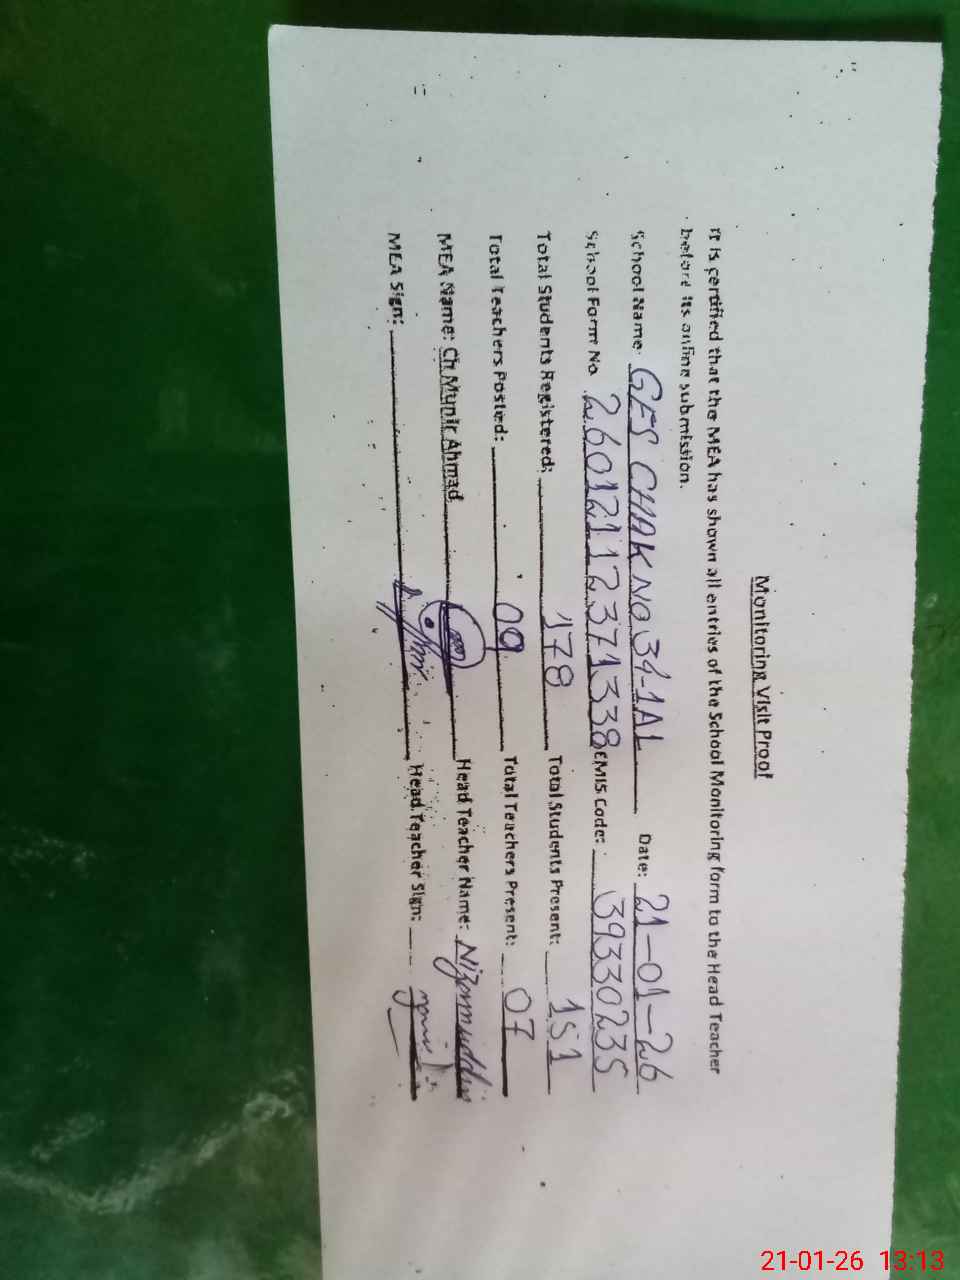 Monitoring Visit Proof
It is certified that the MEA has shown all entries of the School Monitoring form to the Head Teacher
before its online submission.
School Name: GES CHAK NO 34-1AL Date: 21-01-26
School Form No. 26012112371338 EMIS Code: 39330235
Total Students Registered: 178 Total Students Present: 151
Total Teachers Posted: 09 Total Teachers Present: 07
MEA Name: Ch Munir Ahmad Head Teacher Name: Nizamuddin
MEA Sign: Head Teacher Sign:
21-01-26 13:13